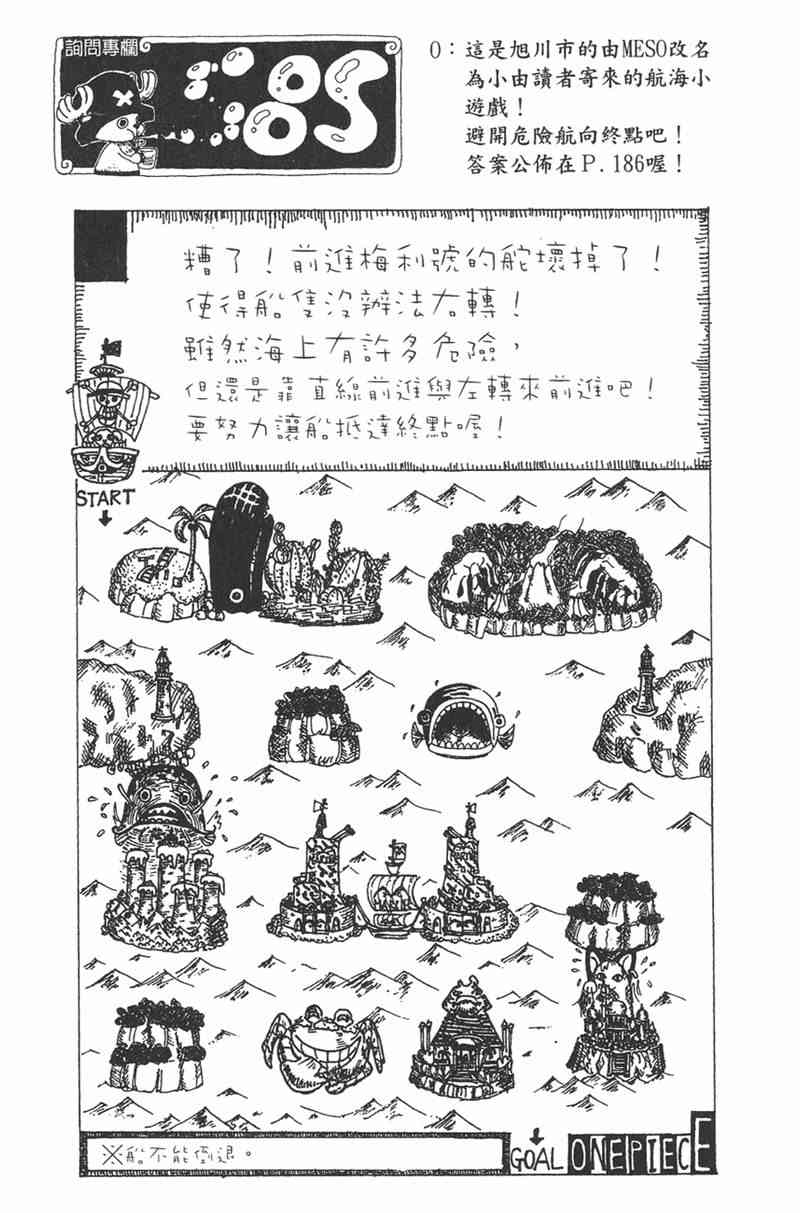 詢問專欄
SBS
O：這是旭川市的由MESO改名
為小由讀者寄來的航海小
遊戲！
避開危險航向終點吧！
答案公佈在P.186喔！
糟了！前進梅利號的舵壞掉了！
使得船隻沒辦法右轉！
雖然海上有許多危險，
但還是靠直線前進與左轉來前進吧！
要努力讓船抵達終點喔！
START
※船不能倒退。
GOAL ONEPIECE